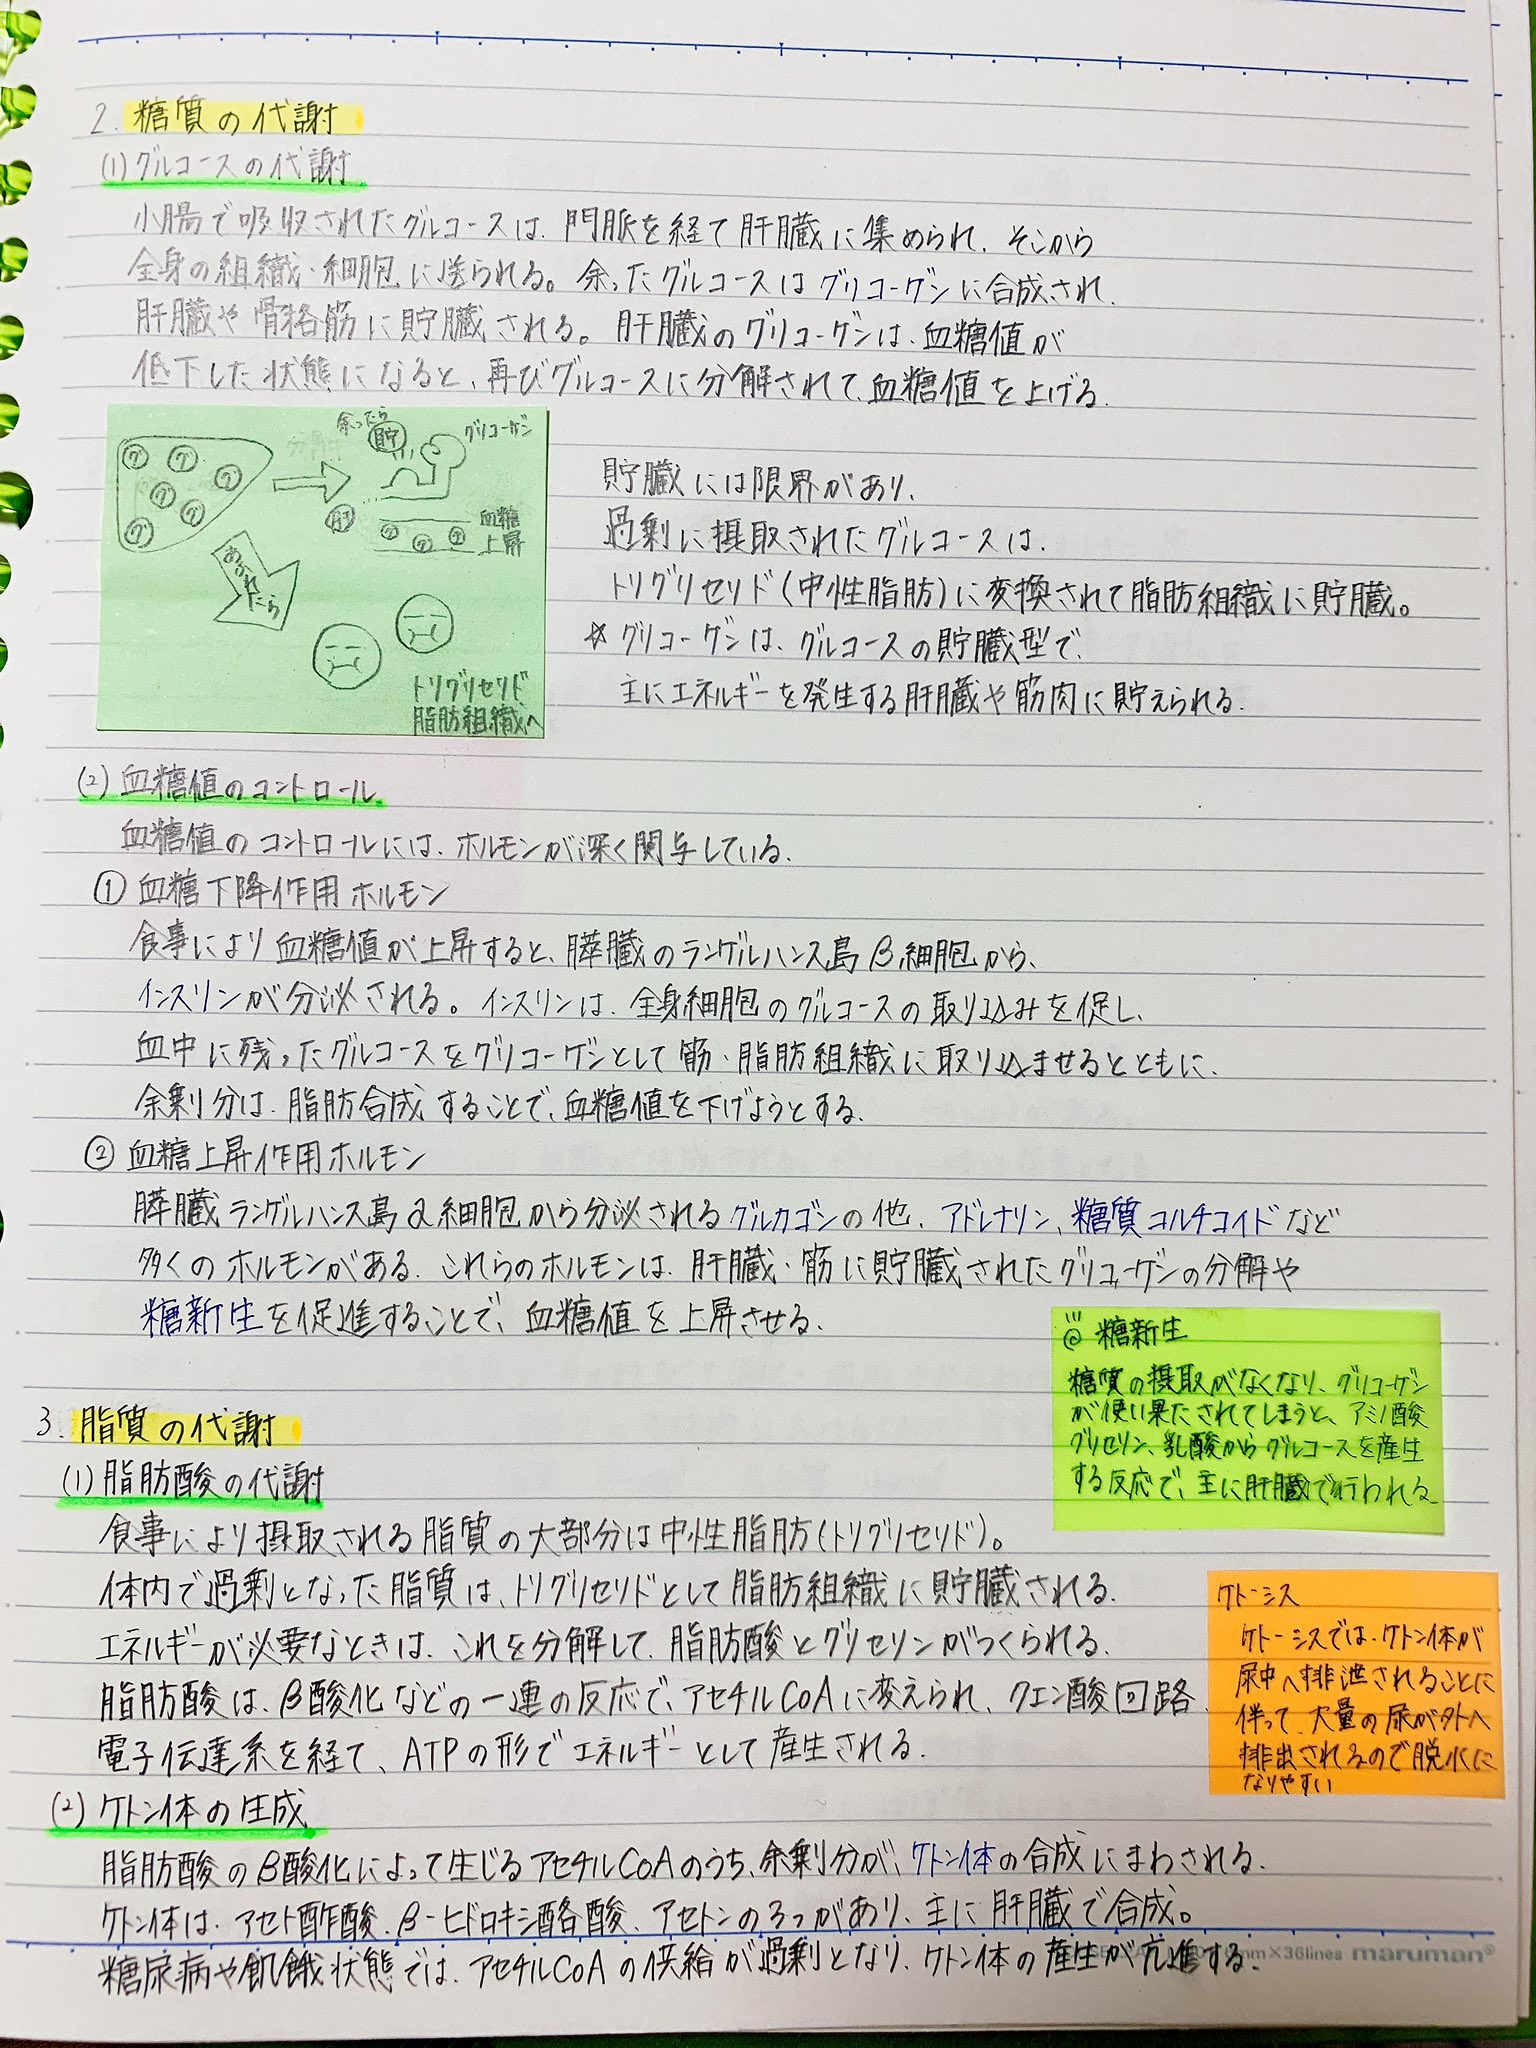 2. 糖質の代謝
(1) グルコースの代謝
小腸で吸収されたグルコースは、門脈を経て肝臓に集められ、そこから
全身の組織・細胞に送られる。余ったグルコースはグリコーゲンに合成され、
肝臓や骨格筋に貯臓される。肝臓のグリコーゲンは、血糖値が
低下した状態になると、再びグルコースに分解されて、血糖値を上げる。
余ったら
貯
グリコーゲン
グ グ グ グ グ グ
肝
グ グ グ
血糖
上昇
あふれ
たら
トリグリセリド
脂肪組織へ
貯臓には限界があり、
過剰に摂取されたグルコースは、
トリグリセリド(中性脂肪)に変換されて脂肪組織に貯臓。
☆グリコーゲンは、グルコースの貯臓型で、
主にエネルギーを発生する肝臓や筋肉に貯えられる。
(2) 血糖値のコントロール
血糖値のコントロールには、ホルモンが深く関与している。
① 血糖下降作用ホルモン
食事により血糖値が上昇すると、膵臓のランゲルハンス島β細胞から、
インスリンが分泌される。インスリンは、全身細胞のグルコースの取り込みを促し、
血中に残ったグルコースをグリコーゲンとして筋・脂肪組織に取り込ませるとともに、
余剰分は、脂肪合成することで、血糖値を下げようとする。
② 血糖上昇作用ホルモン
膵臓ランゲルハンス島α細胞から分泌されるグルカゴンの他、アドレナリン、糖質コルチコイドなど
多くのホルモンがある。これらのホルモンは、肝臓・筋に貯臓されたグリコーゲンの分解や
糖新生を促進することで、血糖値を上昇させる。
糖新生
糖質の摂取がなくなり、グリコーゲン
が使い果たされてしまうと、アミノ酸
グリセリン、乳酸からグルコースを産生
する反応で、主に肝臓で行われる。
3. 脂質の代謝
(1) 脂肪酸の代謝
食事により摂取される脂質の大部分は中性脂肪(トリグリセリド)。
体内で過剰となった脂質は、トリグリセリドとして脂肪組織に貯臓される。
エネルギーが必要なときは、これを分解して、脂肪酸とグリセリンがつくられる。
脂肪酸は、β酸化などの一連の反応で、アセチルCoAに変えられ、クエン酸回路、
電子伝達系を経て、ATPの形でエネルギーとして産生される。
ケトーシス
ケトーシスでは、ケトン体が
尿中へ排泄されることに
伴って、大量の尿が外へ
排出されるので脱水に
なりやすい
(2) ケトン体の生成
脂肪酸のβ酸化によって生じるアセチルCoAのうち、余剰分が、ケトン体の合成にまわされる。
ケトン体は、アセト酢酸、β-ヒドロキシ酪酸、アセトンの3つがあり、主に肝臓で合成。
糖尿病や飢餓状態では、アセチルCoAの供給が過剰となり、ケトン体の産生が亢進する。
mm×36lines maruman®